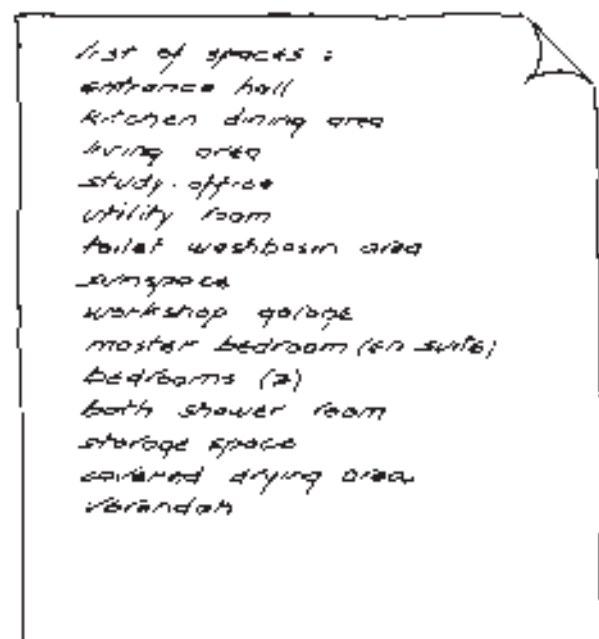 list of spaces :
entrance hall
kitchen dining area
living area
study-office
utility room
toilet washbasin area
sunspace
workshop garage
master bedroom (en suite)
bedrooms (2)
bath shower room
storage space
covered drying area
verandah